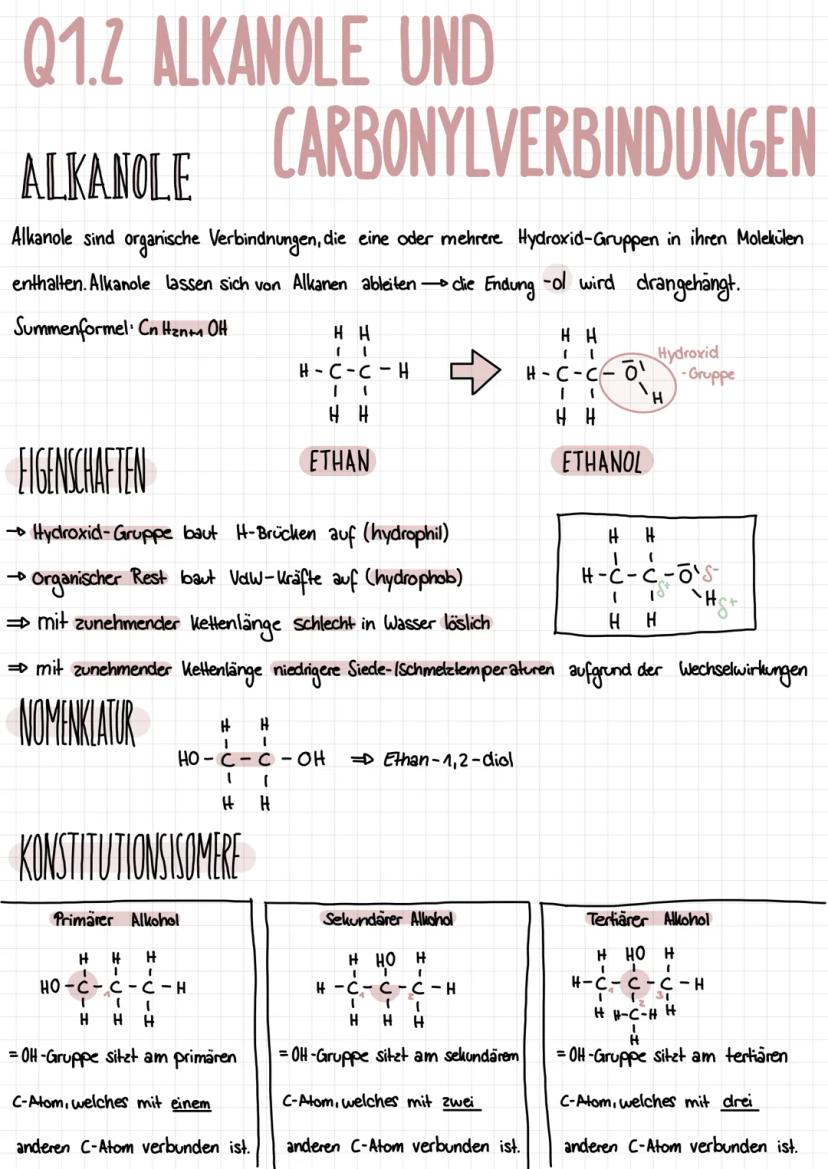 Q1.2 ALKANOLE UND
CARBONYLVERBINDUNGEN
ALKANOLE
Alkanole sind organische Verbindnungen, die eine oder mehrere Hydroxid-Gruppen in ihren Molekülen
enthalten. Alkanole lassen sich von Alkanen ableiten → die Endung -ol wird drangehängt.
Summenformel: Cn H2n+1 OH
H H
H - C - C - H
H H
H H
H - C - C - O
H
H H
Hydroxid
-Gruppe
ETHAN
ETHANOL
EIGENSCHAFTEN
→ Hydroxid-Gruppe baut H-Brücken auf (hydrophil)
→ Organischer Rest baut VdW-Kräfte auf (hydrophob)
⇒ mit zunehmender Kettenlänge schlecht in Wasser löslich
⇒ mit zunehmender Kettenlänge niedrigere Siede-/Schmelztemperaturen aufgrund der Wechselwirkungen
H H
H - C - C - O δ-
δ+ H δ+
H H
NOMENKLATUR
H H
HO - C - C - OH ⇒ Ethan-1,2-diol
H H
KONSTITUTIONSISOMERE
Primärer Alkohol
H H H
HO - C - C - C - H
1
H H H
= OH-Gruppe sitzt am primären
C-Atom, welches mit einem
anderen C-Atom verbunden ist.
Sekundärer Alkohol
H HO H
H - C - C - C - H
1 2
H H H
= OH-Gruppe sitzt am sekundärem
C-Atom, welches mit zwei
anderen C-Atom verbunden ist.
Tertiärer Alkohol
H HO H
H - C - C - C - H
1 2 3
H H-C-H H
H
= OH-Gruppe sitzt am tertiären
C-Atom, welches mit drei
anderen C-Atom verbunden ist.